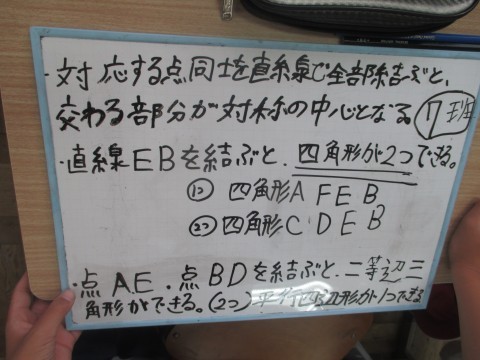 ・対応する点同士を直線で全部結ぶと、
交わる部分が対称の中心となる 7班
・直線EBを結ぶと、四角形が2つできる。
① 四角形AFEB
② 四角形CDEB
・点AE・点BDを結ぶと、二等辺三
角形ができる。(2つ) 平行四辺形が1つできる